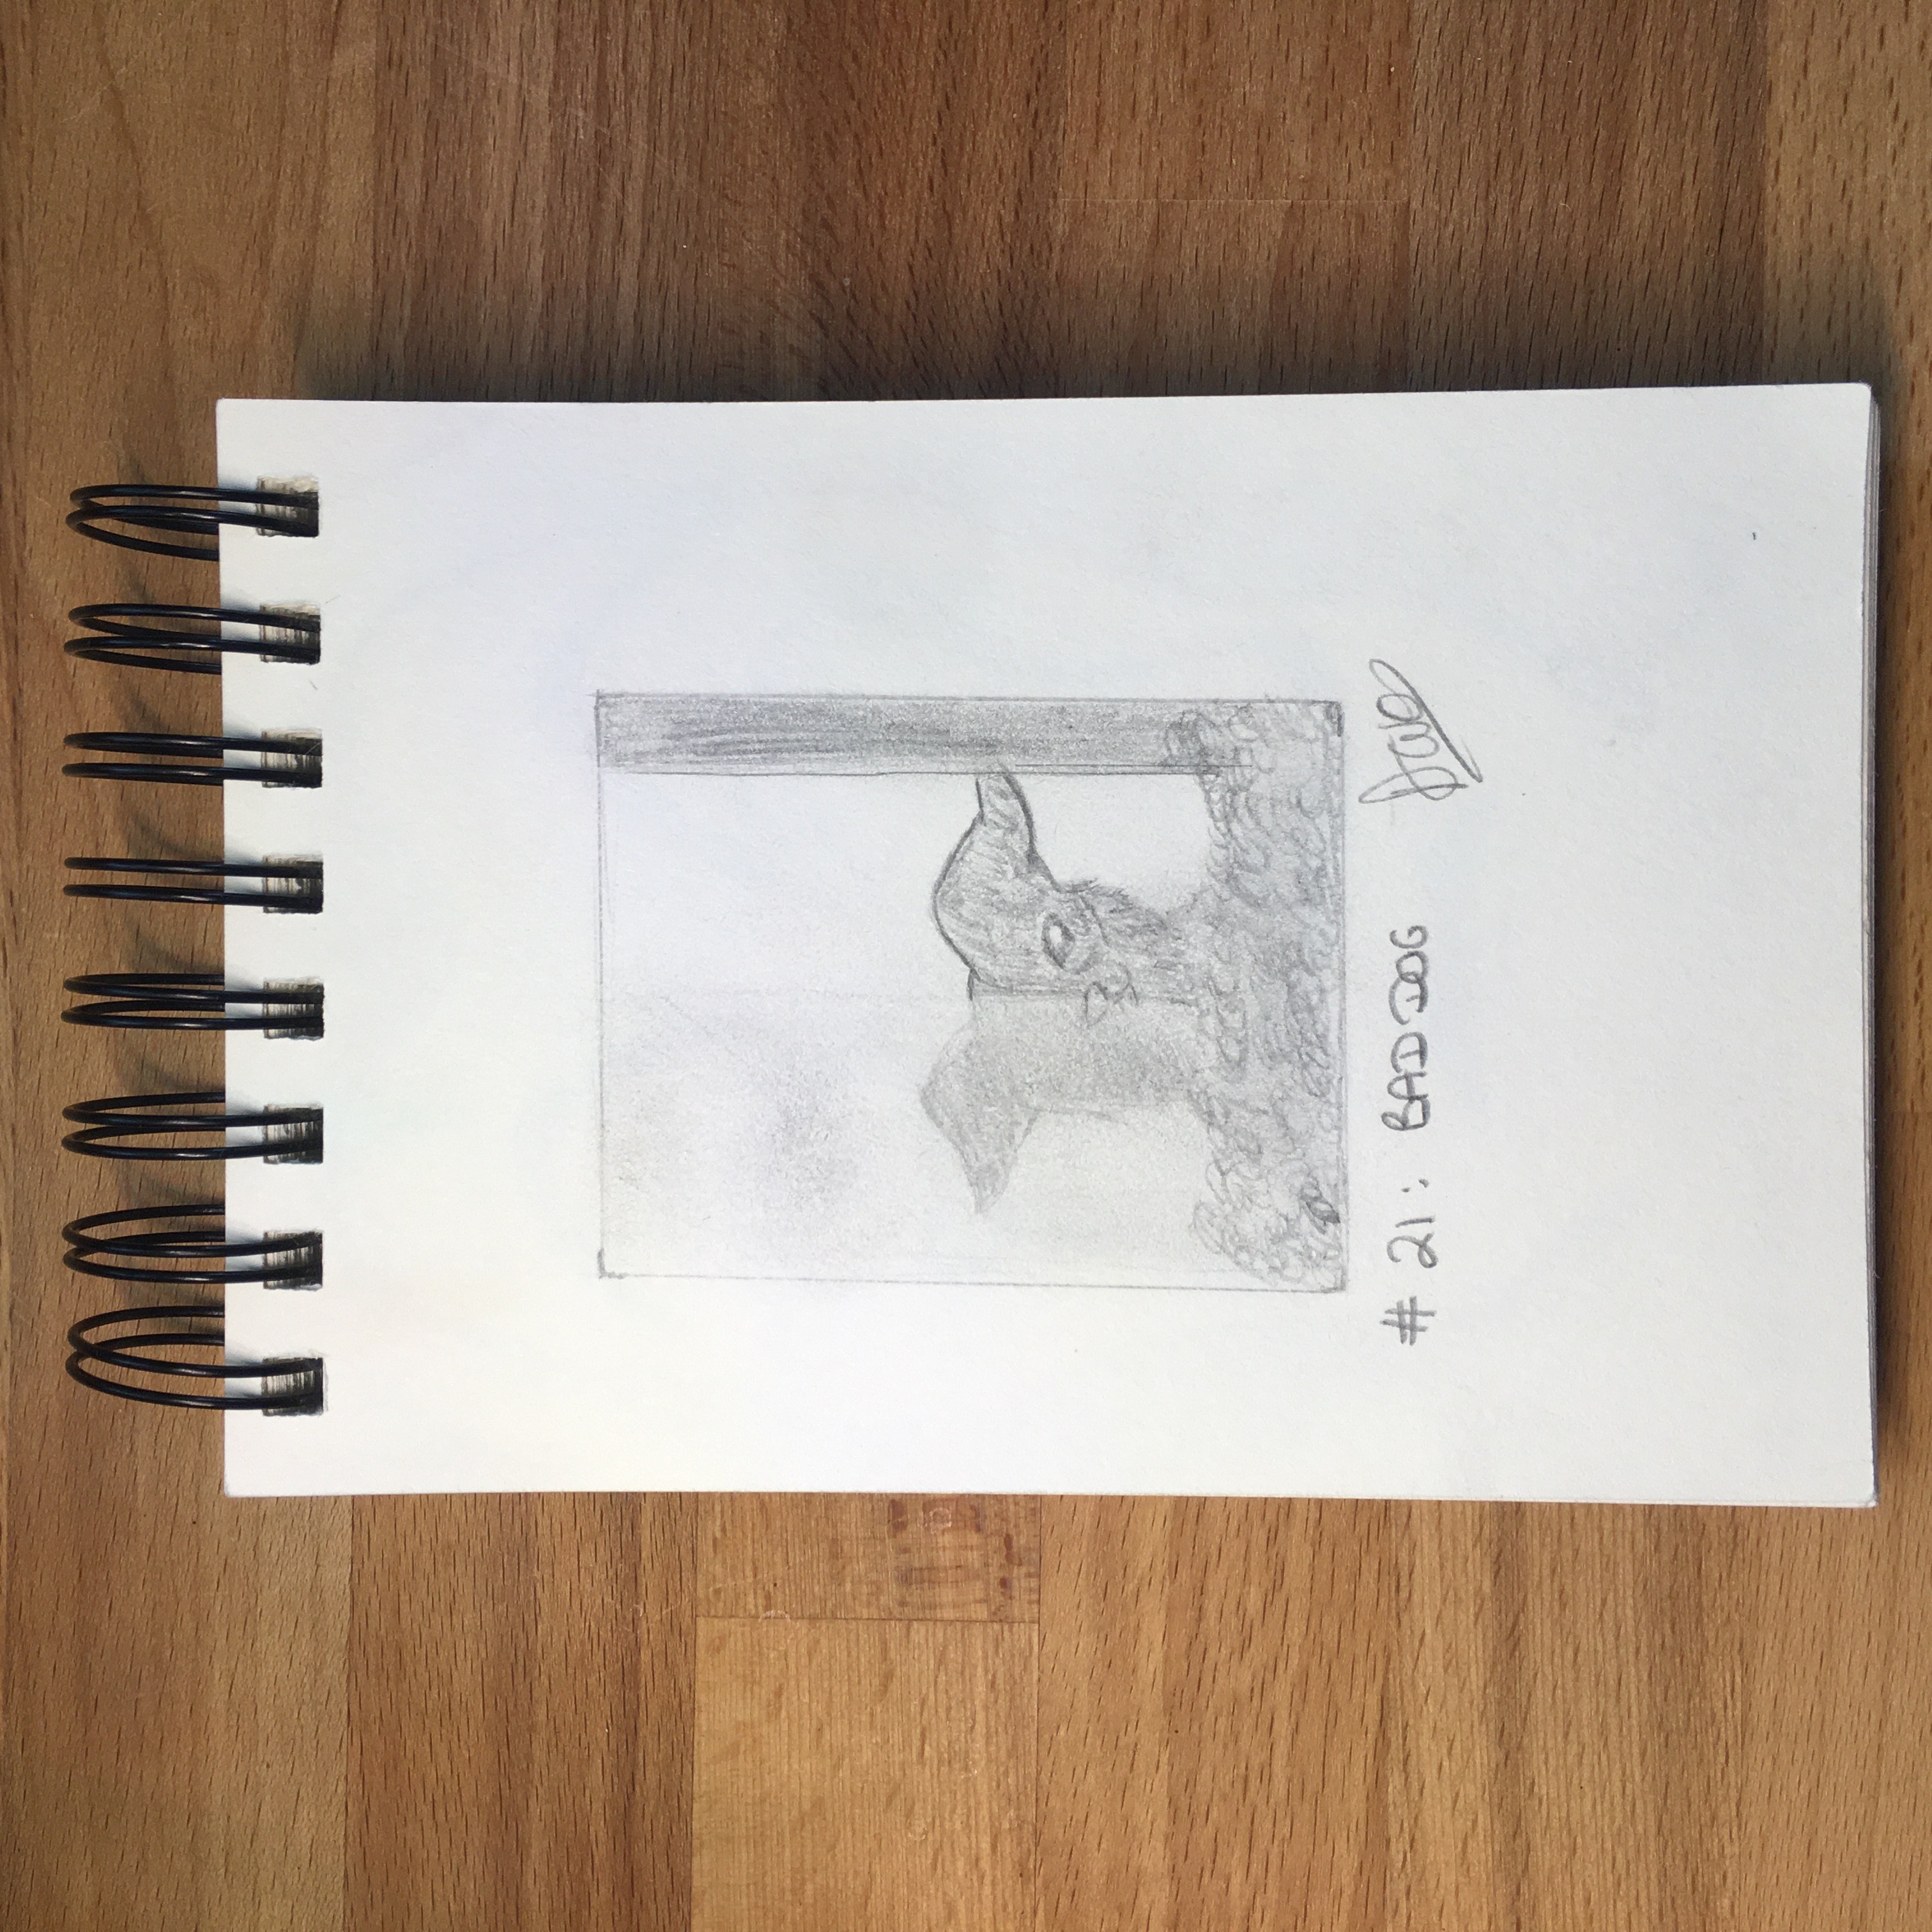 # 21: BAD DOG Dave